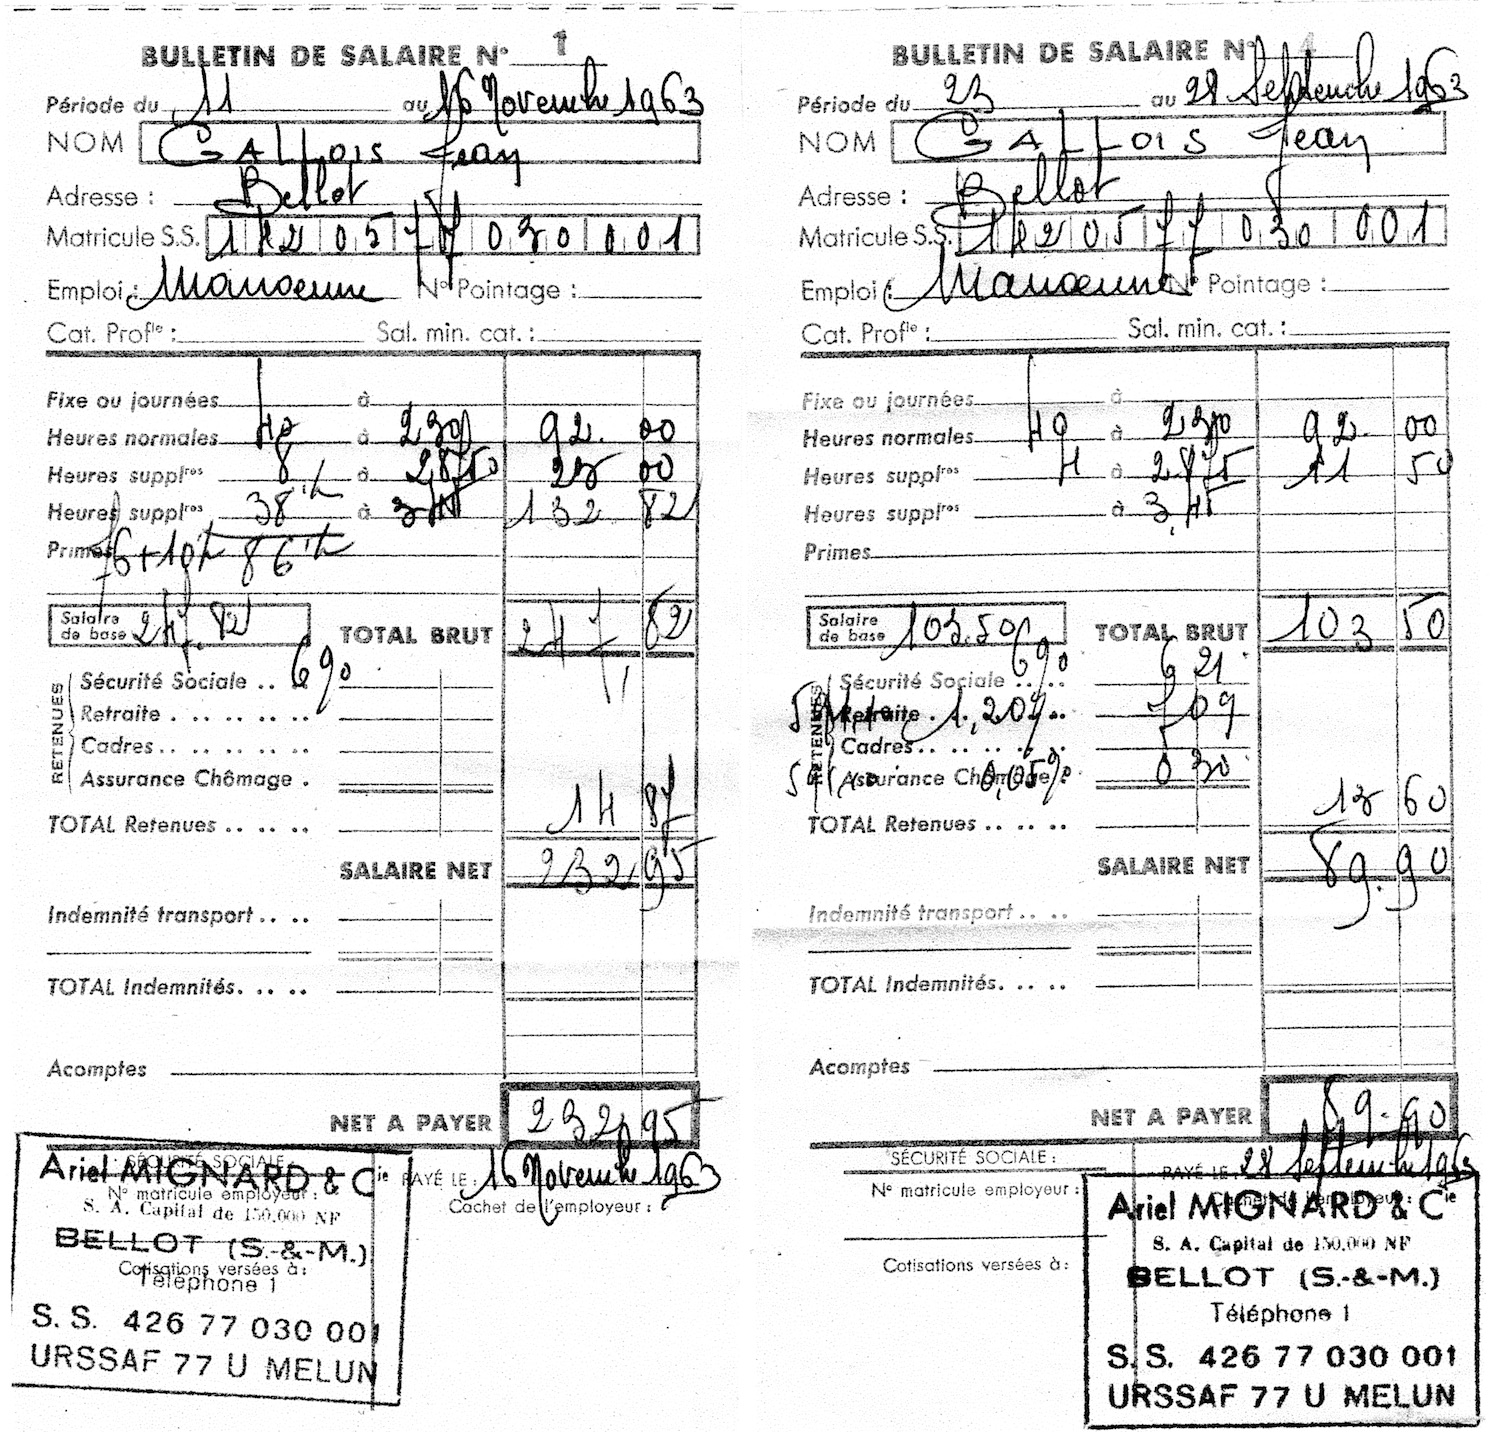 BULLETIN DE SALAIRE N° 1
Période du 11 au 16 Novembre 1963
NOM GALLOIS Jean
Adresse : Bellot
Matricule S.S. 1 42 05 77 030 001
Emploi : Manoeuvre N° Pointage :
Cat. Profle : Sal. min. cat. :
Fixe ou journées à
Heures normales 40 à 2.30 92. 00
Heures supplres 8 à 2.875 23 00
Heures supplres 38 h à 3,45 132. 82
Primes
76+10h 86 h
Salaire de base 247.82 TOTAL BRUT 247, 82
RETENUES
Sécurité Sociale .. 6%
Retraite . .. .. .. ..
Cadres .. .. .. .. ..
Assurance Chômage .
TOTAL Retenues .. .. .. 14 87
SALAIRE NET 232, 95
Indemnité transport .. ..
TOTAL Indemnités. .. ..
Acomptes
NET A PAYER 232, 95
SÉCURITÉ SOCIALE :
PAYÉ LE : 16 Novembre 1963
N° matricule employeur :
Cachet de l'employeur :
Cotisations versées à :
Ariel MIGNARD & Cie
S. A. Capital de 150.000 NF
BELLOT (S.-&-M.)
Téléphone 1
S. S. 426 77 030 001
URSSAF 77 U MELUN
BULLETIN DE SALAIRE N°
Période du 23 au 28 Septembre 1963
NOM GALLOIS Jean
Adresse : Bellot
Matricule S.S. 1 42 05 77 030 001
Emploi : Manoeuvre N° Pointage :
Cat. Profle : Sal. min. cat. :
Fixe ou journées à
Heures normales 40 à 2.30 92. 00
Heures supplres 4 à 2.875 11 50
Heures supplres à 3,45
Primes
Salaire de base 103.50 TOTAL BRUT 103 50
RETENUES
Sécurité Sociale .. .. 6% 6 21
Retraite . 1,20% .. 7 09
Cadres .. .. .. .. ..
Assurance Chômage 0,05% 0 30
TOTAL Retenues .. .. .. 13 60
SALAIRE NET 89. 90
Indemnité transport .. ..
TOTAL Indemnités. .. ..
Acomptes
NET A PAYER 89. 90
SÉCURITÉ SOCIALE :
PAYÉ LE : 28 Septembre 1963
N° matricule employeur :
Cachet de l'employeur :
Cotisations versées à :
Ariel MIGNARD & Cie
S. A. Capital de 150.000 NF
BELLOT (S.-&-M.)
Téléphone 1
S. S. 426 77 030 001
URSSAF 77 U MELUN